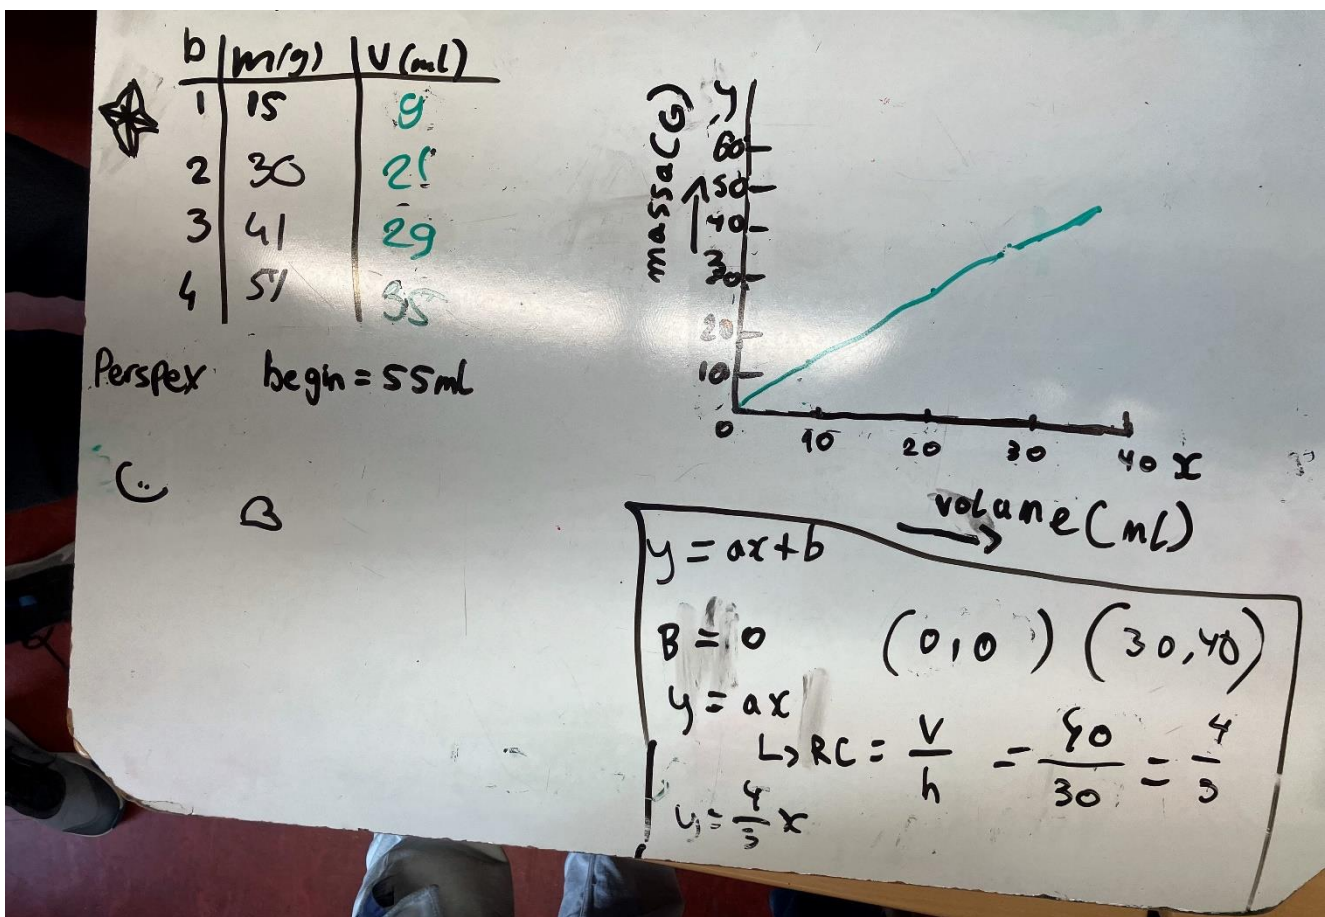 b m(g) V(ml)
1 15 9
2 30 21
3 41 29
4 51 35
Perspex begin = 55ml
B
massa(G)
y
60
50
40
30
20
10
0 10 20 30 40 x
volume(ml)
y = ax+b
B = 0 (0,0) (30,40)
y = ax
↳ RC = V/h = 40/30 = 4/3
y = 4/3 x